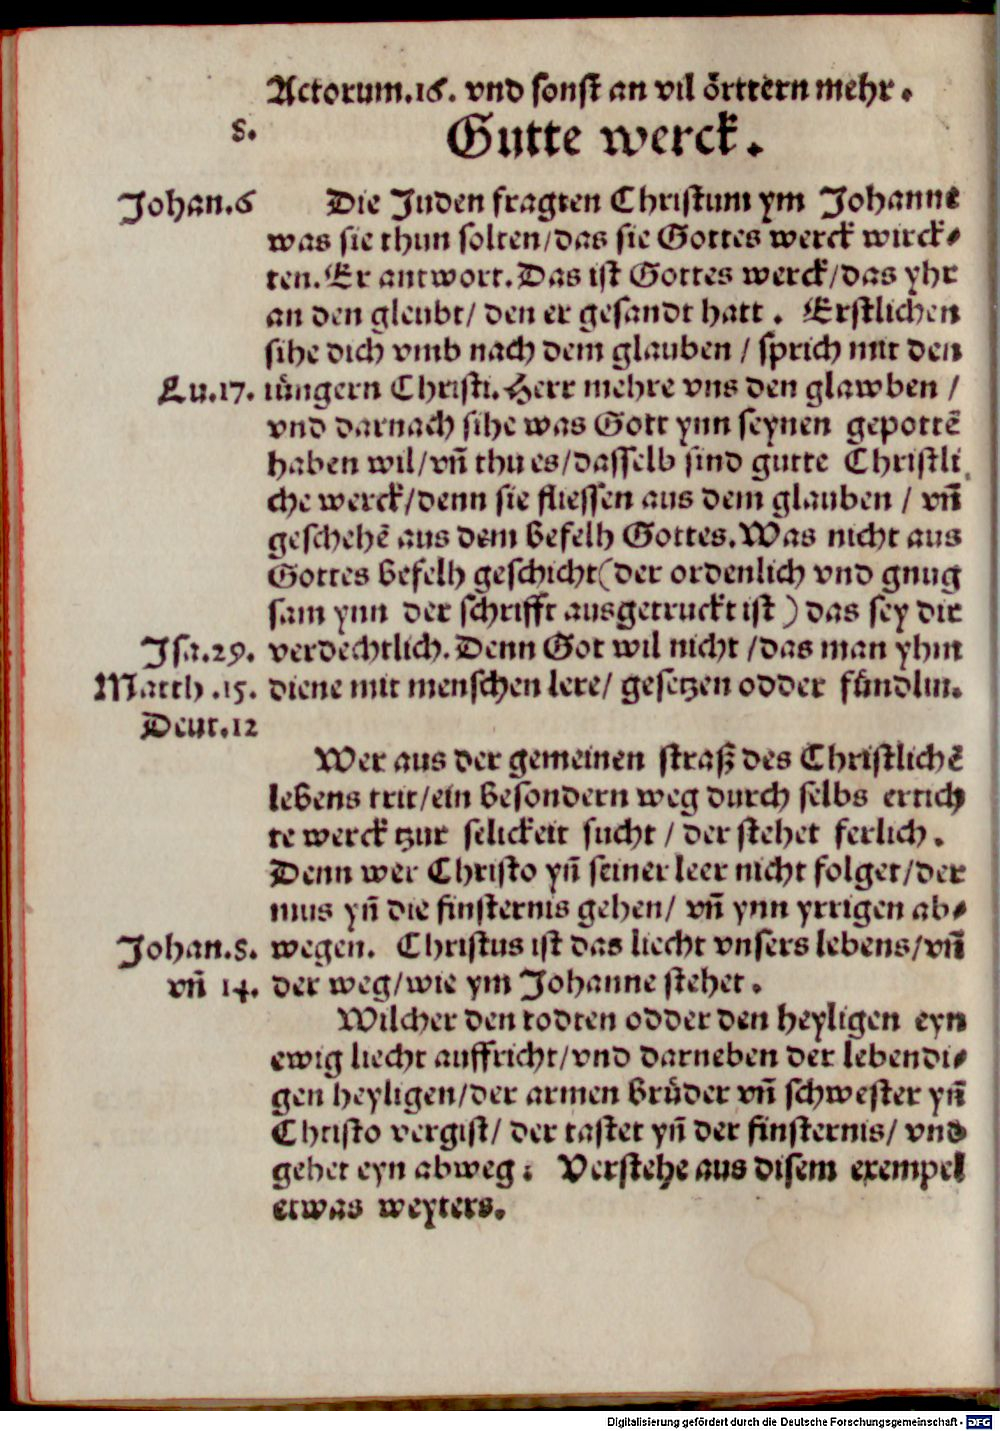 Actorum.16. vnd sonst an vil örttern mehr.
8. Gutte werck.
Johan.6 Die Juden fragten Christum ym Johanne
was sie thun solten/das sie Gottes werck wirck⸗
ten. Er antwort. Das ist Gottes werck/das yhr
an den gleubt/ den er gesandt hatt. Erstlichen
sihe dich vmb nach dem glauben / sprich mit den
Lu.17. iüngern Christi. Herr mehre vns den glawben /
vnd darnach sihe was Gott ynn seynen gepottē
haben wil/vñ thu es/dasselb sind gutte Christli
che werck/denn sie fliessen aus dem glauben / vñ
geschehē aus dem befelh Gottes. Was nicht aus
Gottes befelh geschicht(der ordenlich vnd gnug
sam ynn der schrifft ausgetruckt ist) das sey dir
Isa.29. verdechtlich. Denn Got wil nicht /das man yhm
Matth.15. diene mit menschen lere/ gesetzen odder fündlin.
Deut.12
Wer aus der gemeinen straß des Christlichē
lebens trit/ein besondern weg durch selbs errich
te werck tzur selickeit sucht / der stehet ferlich.
Denn wer Christo yñ seiner leer nicht folget/der
mus yñ die finsternis gehen/ vñ ynn yrrigen ab⸗
Johan.8. wegen. Christus ist das liecht vnsers lebens/vñ
vñ 14. der weg/wie ym Johanne stehet.
Wilcher den todten odder den heyligen eyn
ewig liecht auffricht/vnd darneben der lebendi⸗
gen heyligen/der armen brüder vñ schwester yñ
Christo vergist/ der tastet yñ der finsternis/ vnd
gehet eyn abweg: Verstehe aus disem exempel
etwas weyters.
Digitalisierung gefördert durch die Deutsche Forschungsgemeinschaft - DFG